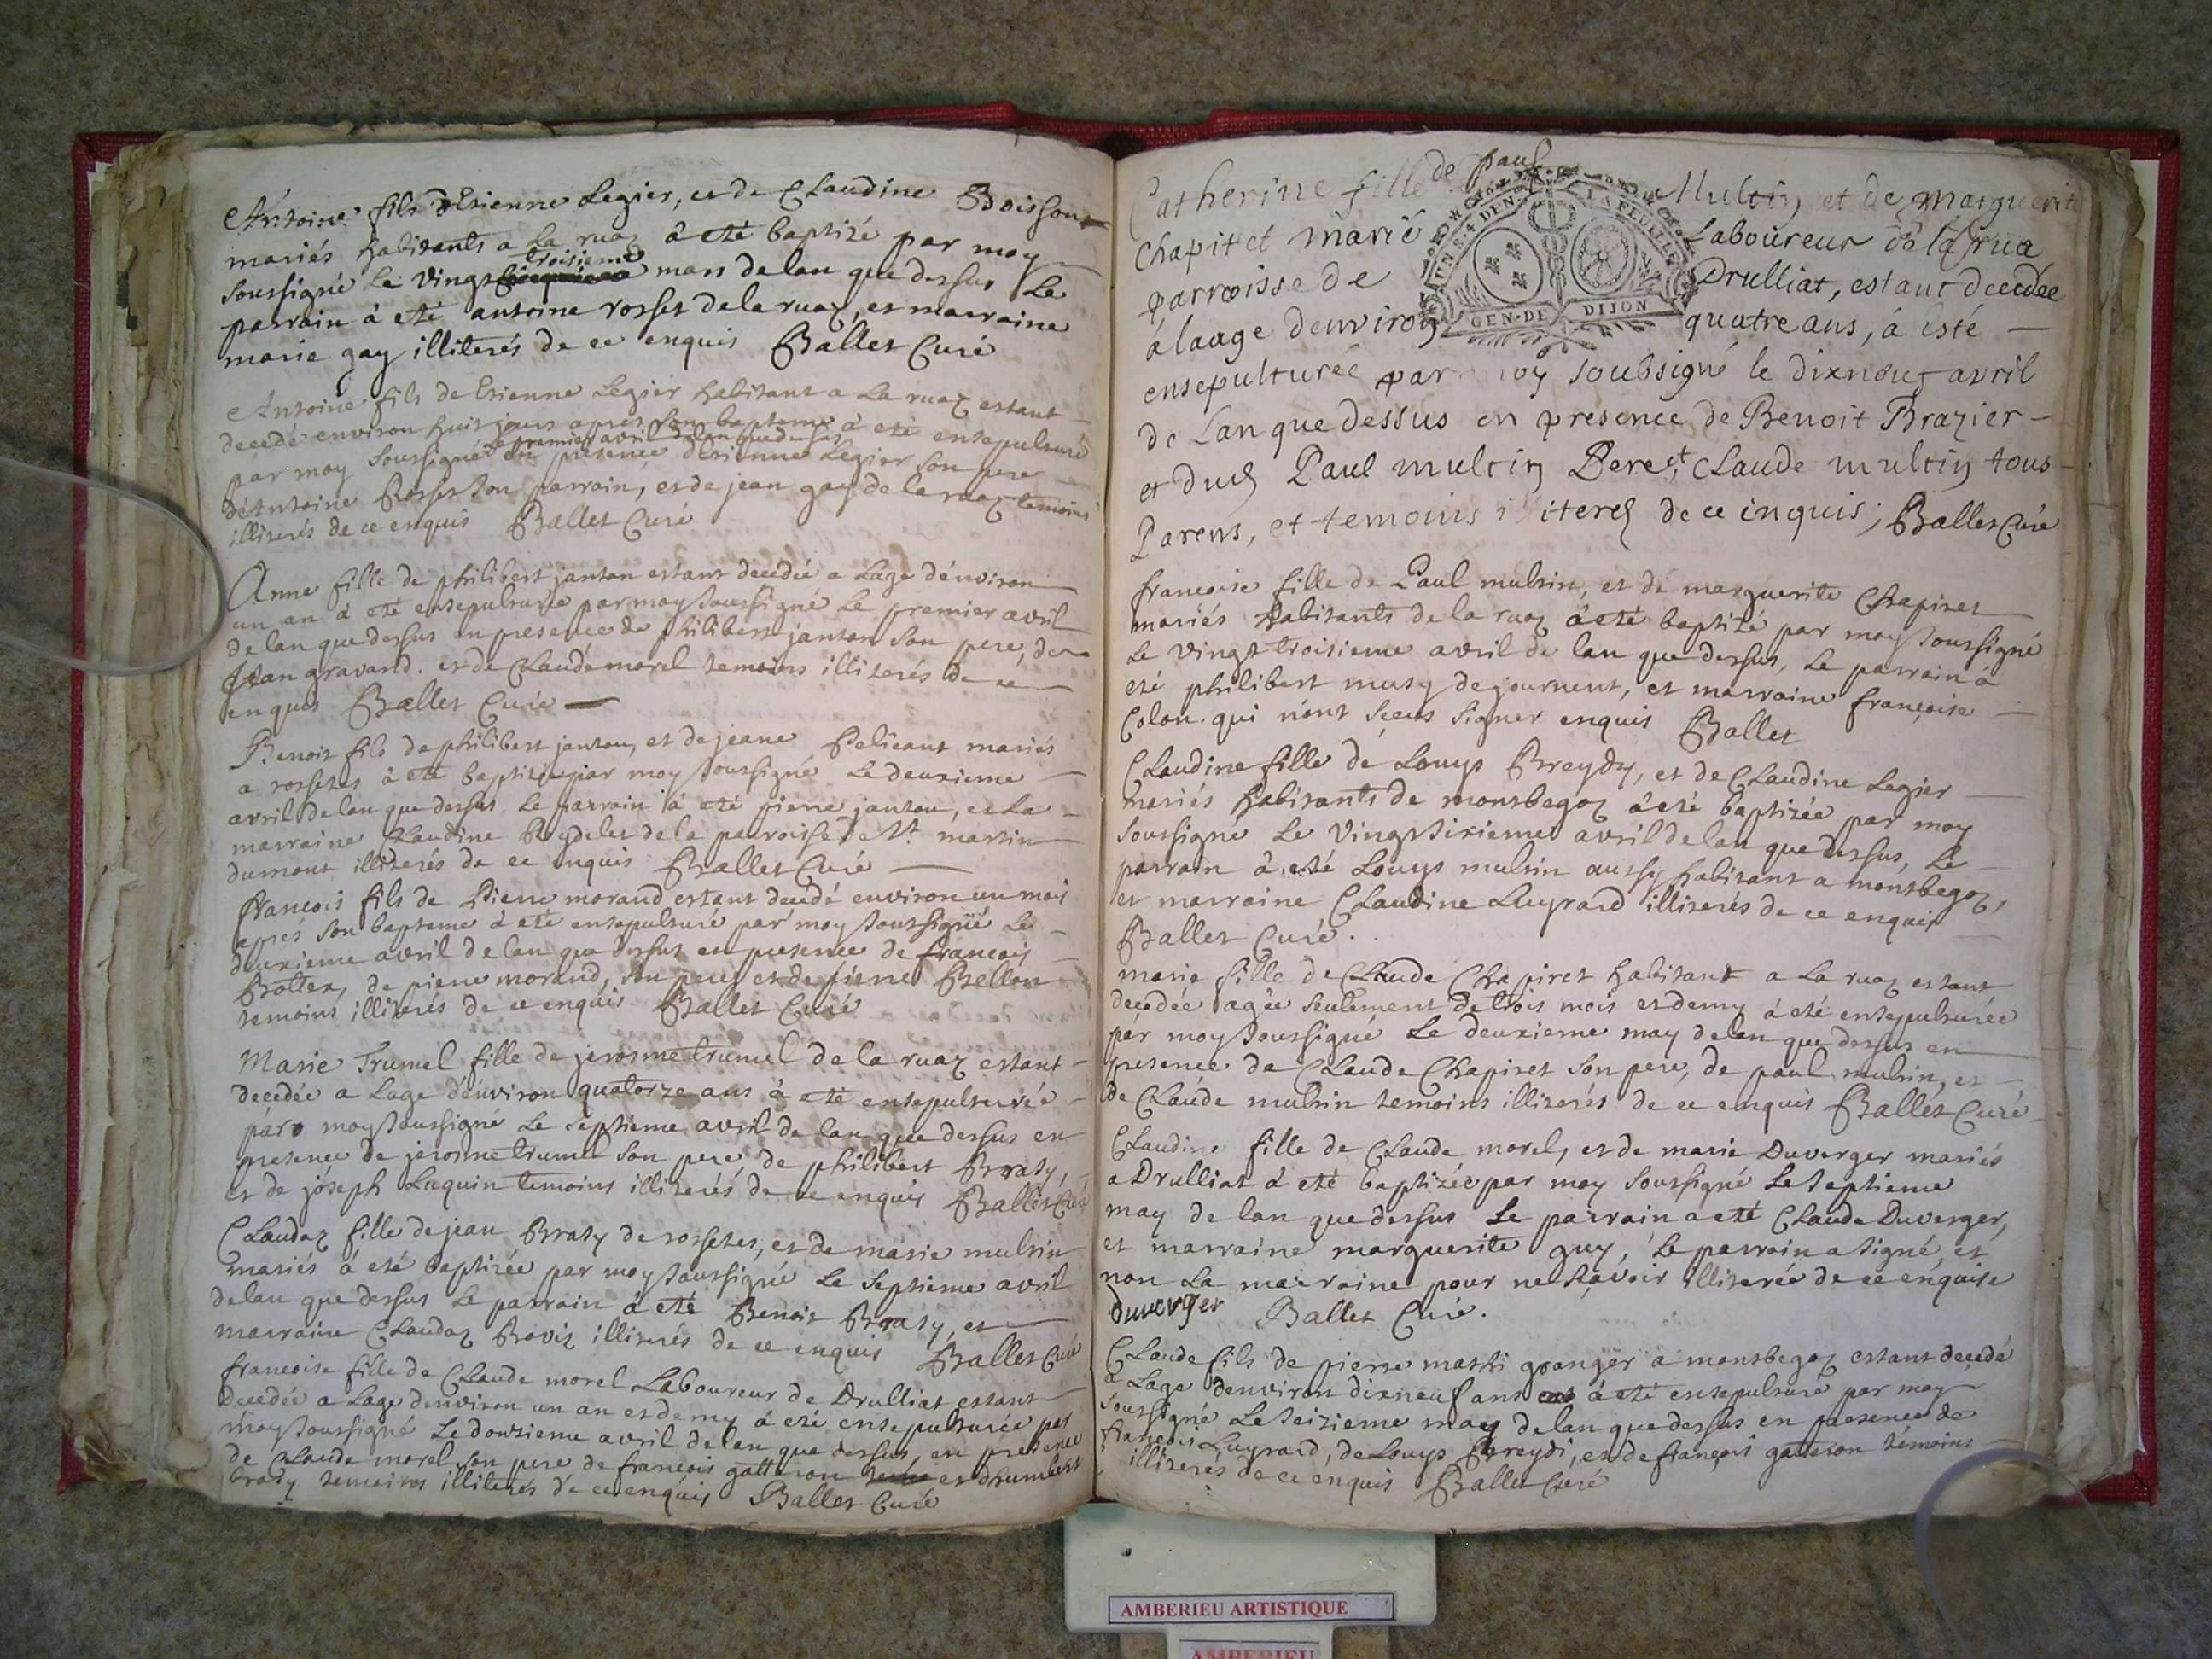 Antoine fils d'Etienne Legier, et de Claudine Boisson
mariés habitants a La ruaz à eté baptizé par moy
troisieme
soussigné Le vingt mars de lan que dessus Le
parrain à eté antoine rosset de la ruaz, et marraine
marie gay illiterés de ce enquis Ballet Curé
Antoine fils de Etienne Legier habitant a La ruaz estant
decedé environ huit jours apres son bapteme à eté ensepulturé
Le premier avril de lan que dessus
par moy soussigné en presence d'Etienne Legier son pere
d'Antoine Rosset son parrain, et de jean gay de la ruaz temoins
illiterés de ce enquis Ballet Curé
Anne fille de philibert janton estant decedée a Lage d'environ
un an à eté ensepulturée par moy soussigné Le premier avril
de lan que dessus en presence de philibert janton son pere, de
Jean gravand. et de Claude morel temoins illiterés de ce
enquis Ballet Curé
Benoit fils de philibert janton, et de jeane Pelicant mariés
a rossetes à eté baptizé par moy soussigné Le deuxieme
avril de lan que dessus Le parrain à eté pierre janton, et La
marraine Claudine Reydelet de la parroisse de St. martin
dumont illiterés de ce enquis Ballet Curé
francois fils de Pierre morand estant decedé environ un mois
apres son bapteme à eté ensepulturé par moy soussigné Le
deuxieme avril de lan que dessus en presence de francois
Bottex, de pierre morand, son pere, et de pierre Bellon
temoins illiterés de ce enquis Ballet Curé
Marie Trumel fille de jerosme trumel de la ruaz estant
decedée a Lage d'environ quatorze ans à eté ensepulturée
par moy soussigné Le septieme avril de lan que dessus en
presence de jerosme trumel son pere de philibert Brasy,
et de joseph Luquin temoins illiterés de ce enquis Ballet Curé
Claudaz fille de jean Brasy de rossetes, et de marie multin
mariés à eté baptizée par moy soussigné Le septieme avril
de lan que dessus Le parrain à eté Benoit Brasy, et
marraine Claudaz Boviz illiterés de ce enquis Ballet Curé
francoise fille de Claude morel Laboureur de Drulliat estant
decedée a Lage d'environ un an et demy à eté ensepulturée par
moy soussigné Le douzieme avril de lan que dessus, en presence
de Claude morel son pere de francois gatteron et d'humbert
brasy temoins illiterés de ce enquis Ballet Curé
Catherine fille de paul Multin et de marguerite
Chapitet marié Laboureur de la rua
parroisse de Drulliat, estant decedée
a laage denviron quatre ans, à esté
ensepulturée par moy soubsigné le dixneuf avril
de Lan que dessus en presence de Benoit Brazier
et dud Paul multin Pere, et Claude multin tous
Parens, et temoins illiteres de ce inquis; Ballet Curé
UN S. 4 DEN. LA FEUILLE
GEN. DE DIJON
francoise fille de Paul multin, et de marguerite Chapitet
mariés habitants de la ruaz à eté baptizé par moy soussigné
Le vingt troisieme avril de lan que dessus, Le parrain à
eté philibert musy de journent, et marraine françoise
Colon. qui n'ont sceus signer enquis Ballet
Claudine fille de Louys Breydy, et de Claudine Legier
mariés habitants de montbegoz à eté baptizée par moy
soussigné Le vingt sixieme avril de lan que dessus, Le
parrain à eté Louys multin aussy habitant a montbegoz,
et marraine Claudine Luyrard illiterés de ce enquis
Ballet Curé.
marie fille de Claude Chapitet habitant a La ruaz estant
decedée agée seulement de trois mois et demy à eté ensepulturée
par moy soussigné Le deuxieme may de lan que dessus en
presence de Claude Chapitet son pere, de paul multin, et
de Claude multin temoins illiterés de ce enquis Ballet Curé
Claudine fille de Claude morel, et de marie Duverger mariés
a Drulliat à eté baptizée par moy soussigné Le septieme
may de lan que dessus Le parrain a eté Claude Duverger,
et marraine marguerite guy, Le parrain a signé, et
non La marraine pour ne sçavoir illiterée de ce enquise
duverger Ballet Curé.
Claude fils de pierre granger a montbegoz estant decedé
a Lage d'environ dixneuf ans à eté ensepulturé par moy
soussigné Le seizieme may de lan que dessus en presence de
francois Luyrard, de Louys Breydi, et de françois gatteron témoins
illiterés de ce enquis Ballet Curé
AMBERIEU ARTISTIQUE
AMBERIEU